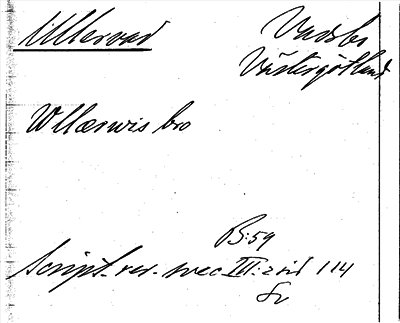 Ullervad
Vadsbo
Västergötland
Wllærwis bro
B:59
Script. rer. svec III:2 sid 114